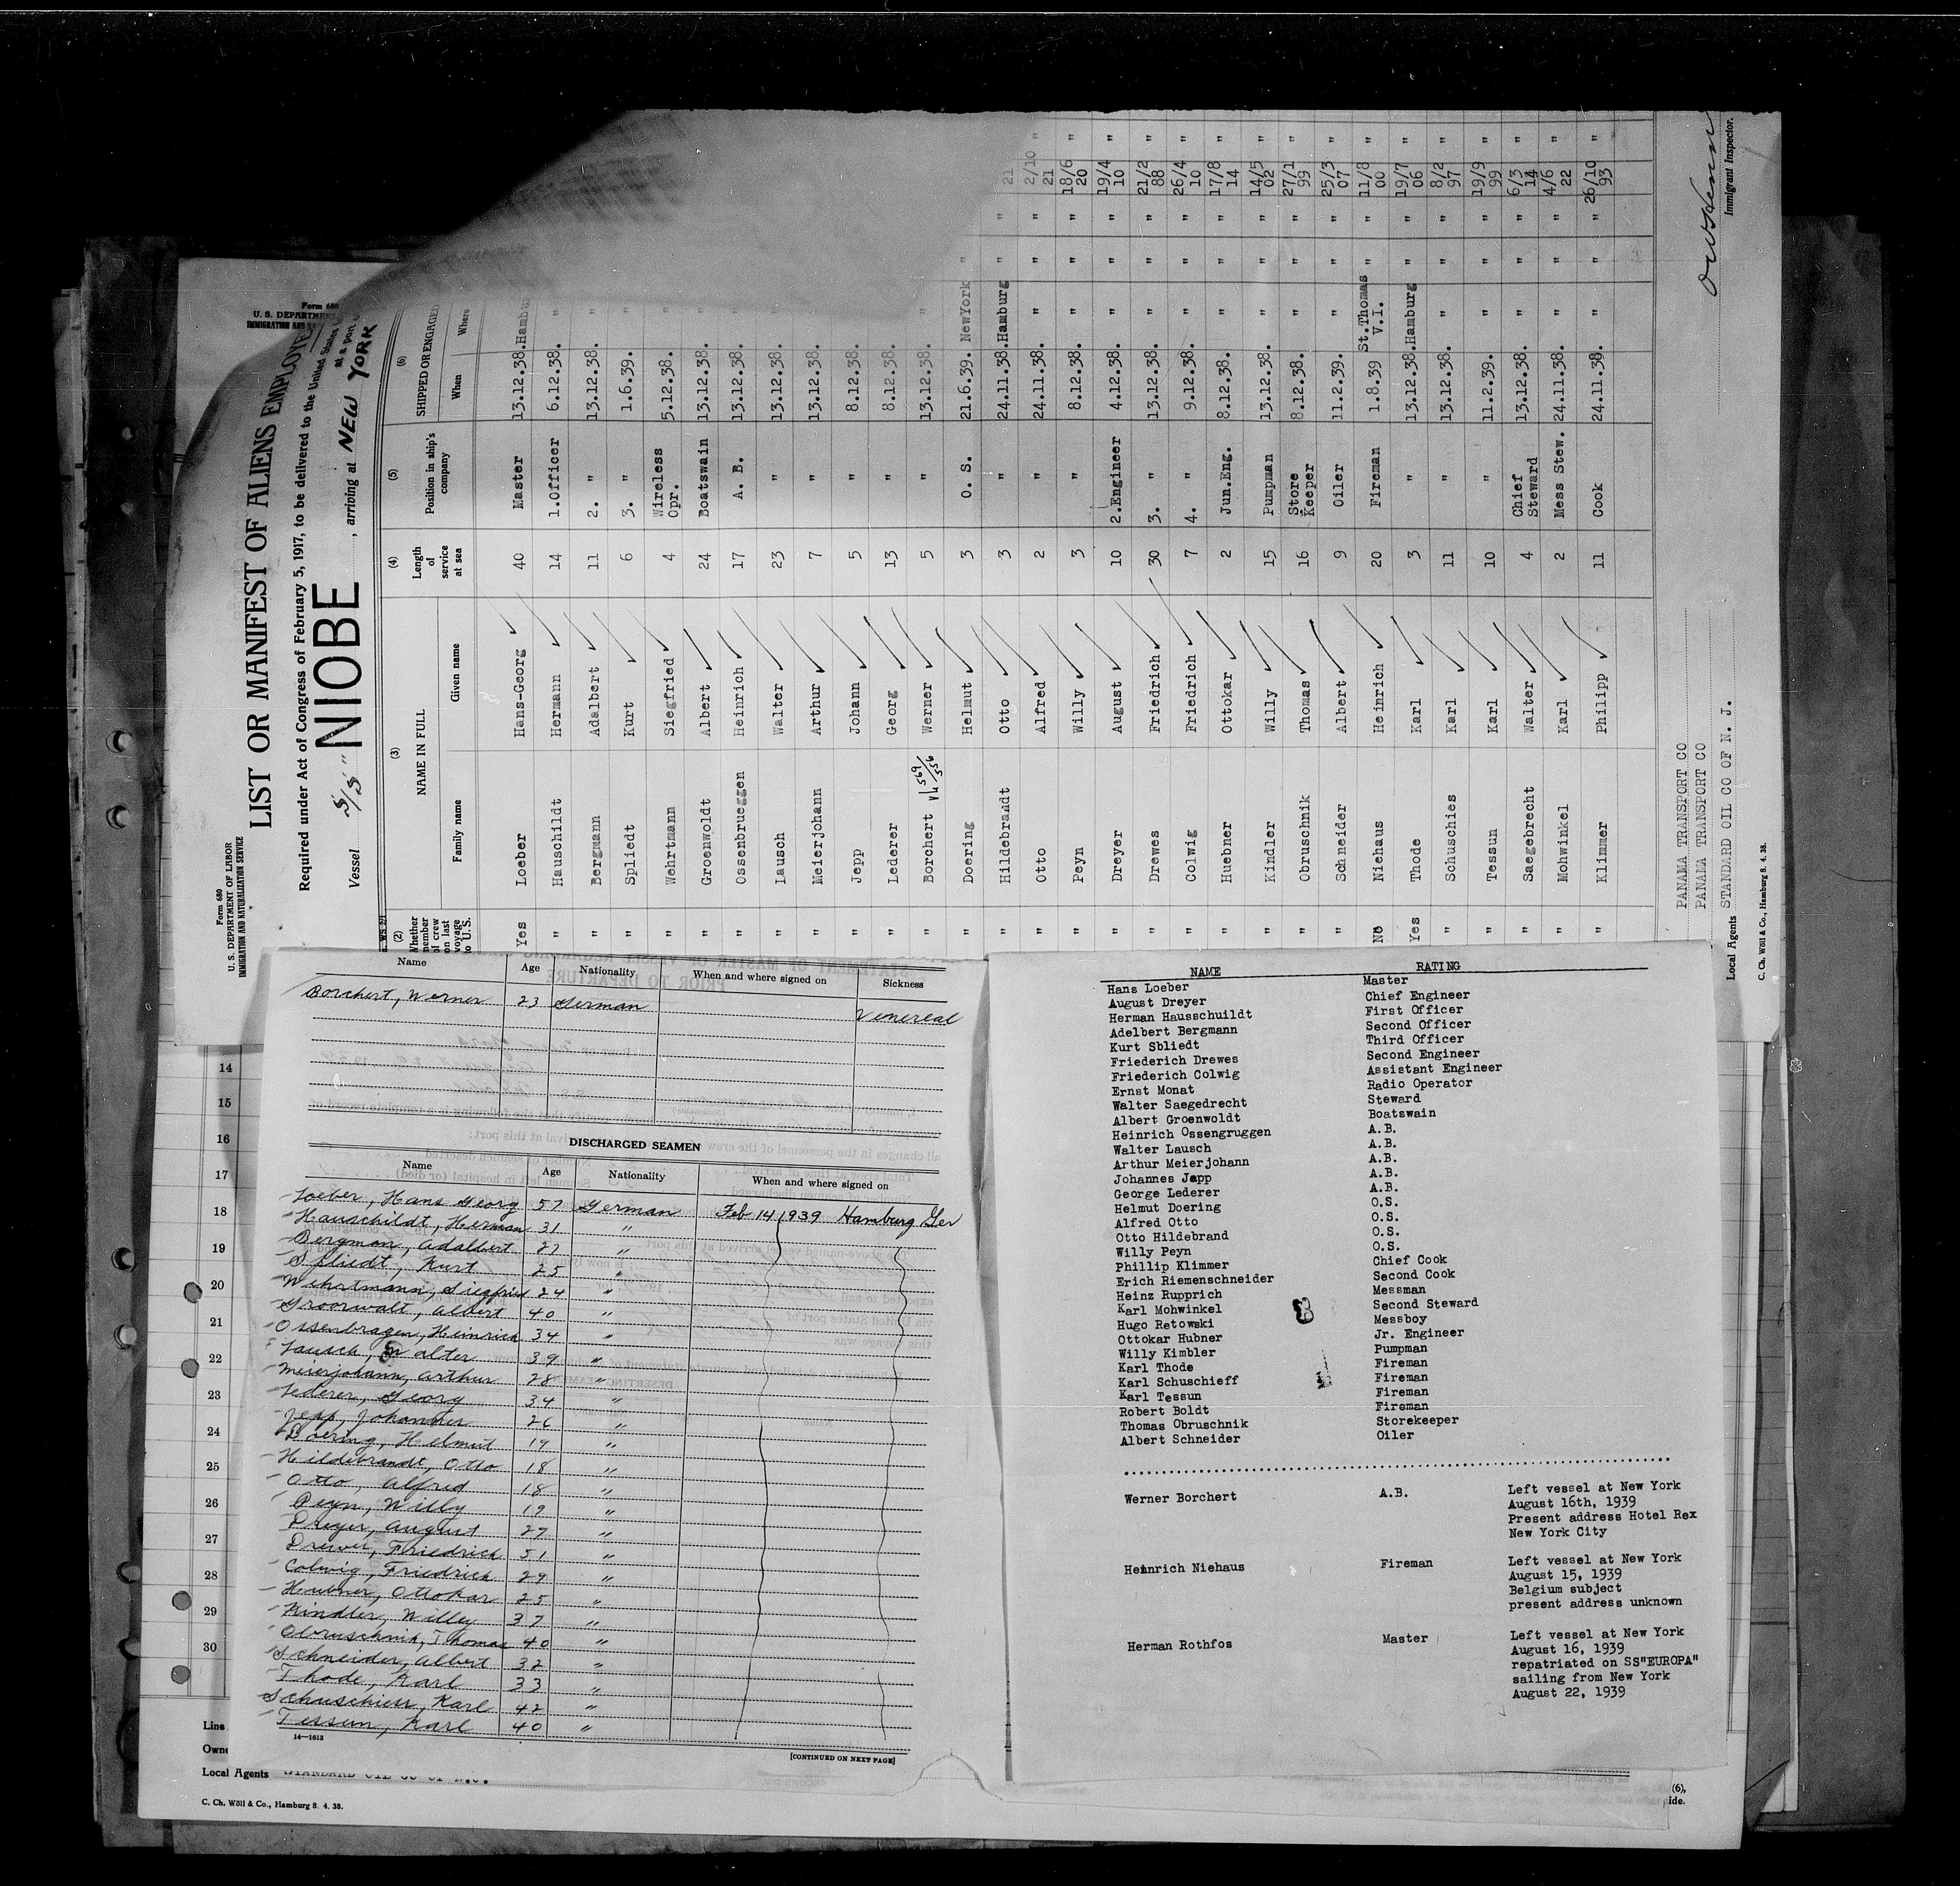 Form 680
U. S. DEPARTMENT OF LABOR
IMMIGRATION AND NATURALIZATION SERVICE
Form 680
U. S. DEPARTME
IMMIGRATION AND
LIST OR MANIFEST OF ALIENS EMPLOYE
Required under Act of Congress of February 5, 1917, to be delivered to the United States
at a port
Vessel S/S "NIOBE , arriving at NEW YORK
(2) (3) (4) (5) (6)
Whether member of crew on last voyage to U.S. NAME IN FULL Length of service at sea Position in ship's company SHIPPED OR ENGAGED
Family name Given name When Where
Yes Loeber Hans-Georg 40 Master 13.12.38. Hambu
" Hauschildt Hermann 14 1.Officer 6.12.38. "
" Bergmann Adalbert 11 2. " 13.12.38. "
" Spliedt Kurt 6 3. " 1.6.39. "
" Wehrtmann Siegfried 4 Wireless Opr. 5.12.38. "
" Groenwoldt Albert 24 Boatswain 13.12.38. "
" Ossenbrueggen Heinrich 17 A. B. 13.12.38. "
" Lausch Walter 23 " 13.12.38. "
" Meierjohann Arthur 7 " 13.12.38. "
" Jepp Johann 5 " 8.12.38. "
" Lederer Georg 13 " 8.12.38. "
" Borchert 569/556 Werner 5 " 13.12.38. "
" Doering Helmut 3 O. S. 21.6.39. NewYork "
" Hildebrandt Otto 3 " 24.11.38. Hamburg " " 21
" Otto Alfred 2 " 24.11.38. " " " 2/10 21 "
" Peyn Willy 3 " 8.12.38. " " " 18/6 20 "
" Dreyer August 10 2.Engineer 4.12.38. " " " 19/4 10 "
" Drewes Friedrich 30 3. " 13.12.38. " " " 21/2 88 "
" Colwig Friedrich 7 4. " 9.12.38. " " " 26/4 10 "
" Huebner Ottokar 2 Jun.Eng. 8.12.38. " " " 17/8 14 "
" Kindler Willy 15 Pumpman 13.12.38. " " " 14/5 02 "
" Obruschnik Thomas 16 Store Keeper 8.12.38. " " " 27/1 99 "
" Schneider Albert 9 Oiler 11.2.39. " " " 25/3 07 "
No Niehaus Heinrich 20 Fireman 1.8.39 St.Thomas V.I. " " 11/8 00 "
Yes Thode Karl 3 " 13.12.38. Hamburg " " 19/7 06 "
" Schuschies Karl 11 " 13.12.38. " " " 8/2 97 "
" Tessun Karl 10 " 11.2.39. " " " 19/9 99 "
" Saegebrecht Walter 4 Chief Steward 13.12.38. " " " 6/3 14 "
" Mohwinkel Karl 2 Mess Stew. 24.11.38. " " " 4/6 22 "
" Klimmer Philipp 11 Cook 24.11.38. " " " 26/10 93 "
PANAMA TRANSPORT CO
PANAMA TRANSPORT CO
Local Agents STANDARD OIL CO OF N. J.
Immigrant Inspector.
C. Ch. Wöll & Co., Hamburg 8. 4. 38.
Name Age Nationality When and where signed on Sickness
Borchert, Werner 23 German Venereal
DISCHARGED SEAMEN
Name Age Nationality When and where signed on
Loeber, Hans Georg 57 German Feb 14 1939 Hamburg Ger
Hauschildt, Herman 31 "
Bergman, Adalbert 27 "
Spliedt, Kurt 25 "
Wehrtmann, Siegfried 24 "
Groorwalt, Albert 40 "
Ossenbragen, Heinrich 34 "
Lausch, Walter 39 "
Meierjohann, Arthur 28 "
Lederer, Georg 34 "
Jepp, Johannes 26 "
Doering, Helmut 19 "
Hildebrandt, Otto 18 "
Otto, Alfred 18 "
Peyn, Willy 19 "
Dreyer, August 29 "
Drewes, Friedrich 51 "
Colwig, Friedrich 29 "
Hubner, Ottokar 25 "
Kindler, Willey 37 "
Obruschnik, Thomas 40 "
Schneider, Albert 32 "
Thode, Karl 33 "
Schuschiess, Karl 42 "
Tessun, Karl 40 "
14—1613
[CONTINUED ON NEXT PAGE]
14
15
16
17
18
19
20
21
22
23
24
25
26
27
28
29
30
Line
Owne
Local Agents STANDARD OIL CO OF N.J.
C. Ch. Wöll & Co., Hamburg 8. 4. 38.
NAME RATING
Hans Loeber Master
August Dreyer Chief Engineer
Herman Hausschuildt First Officer
Adelbert Bergmann Second Officer
Kurt Sbliedt Third Officer
Friederich Drewes Second Engineer
Friederich Colwig Assistant Engineer
Ernst Monat Radio Operator
Walter Saegedrecht Steward
Albert Groenwoldt Boatswain
Heinrich Ossengruggen A.B.
Walter Lausch A.B.
Arthur Meierjohann A.B.
Johannes Japp A.B.
George Lederer A.B.
Helmut Doering O.S.
Alfred Otto O.S.
Otto Hildebrand O.S.
Willy Peyn O.S.
Phillip Klimmer Chief Cook
Erich Riemenschneider Second Cook
Heinz Rupprich Messman
Karl Mohwinkel Second Steward
Hugo Retowski Messboy
Ottokar Hubner Jr. Engineer
Willy Kimbler Pumpman
Karl Thode Fireman
Karl Schuschieff Fireman
Karl Tessun Fireman
Robert Boldt Fireman
Thomas Obruschnik Storekeeper
Albert Schneider Oiler
Werner Borchert A.B. Left vessel at New York
August 16th, 1939
Present address Hotel Rex
New York City
Heinrich Niehaus Fireman Left vessel at New York
August 15, 1939
Belgium subject
present address unknown
Herman Rothfos Master Left vessel at New York
August 16, 1939
repatriated on SS"EUROPA"
sailing from New York
August 22, 1939
(6),
ide.